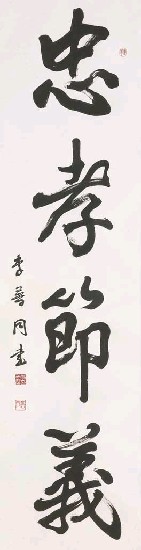 忠孝節義
李萼同書